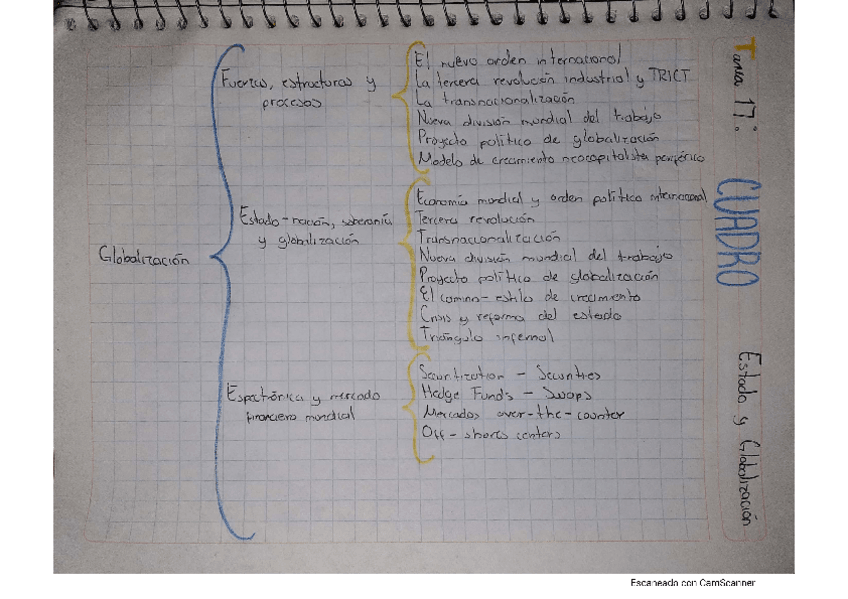 Tarea 17: CUADRO
Estado y Globalización
Globalización
Fuerzas, estructuras y
procesos
El nuevo orden internacional
La tercera revolución industrial y TRICT
La transnacionalización
Nueva división mundial del trabajo
Proyecto político de globalización
Modelo de crecimiento neocapitalista periférico
Estado-nación, soberanía
y globalización
Economía mundial y orden político internacional
Tercera revolución
Transnacionalización
Nueva división mundial del trabajo
Proyecto político de globalización
El camino-estilo de crecimiento
Crisis y reforma del estado
Triángulo infernal
y mercado
financiero mundial
Securitization - Securities
Hedge Funds - Swaps
Mercados over-the-counter
Off-shores centers
Escaneado con CamScanner